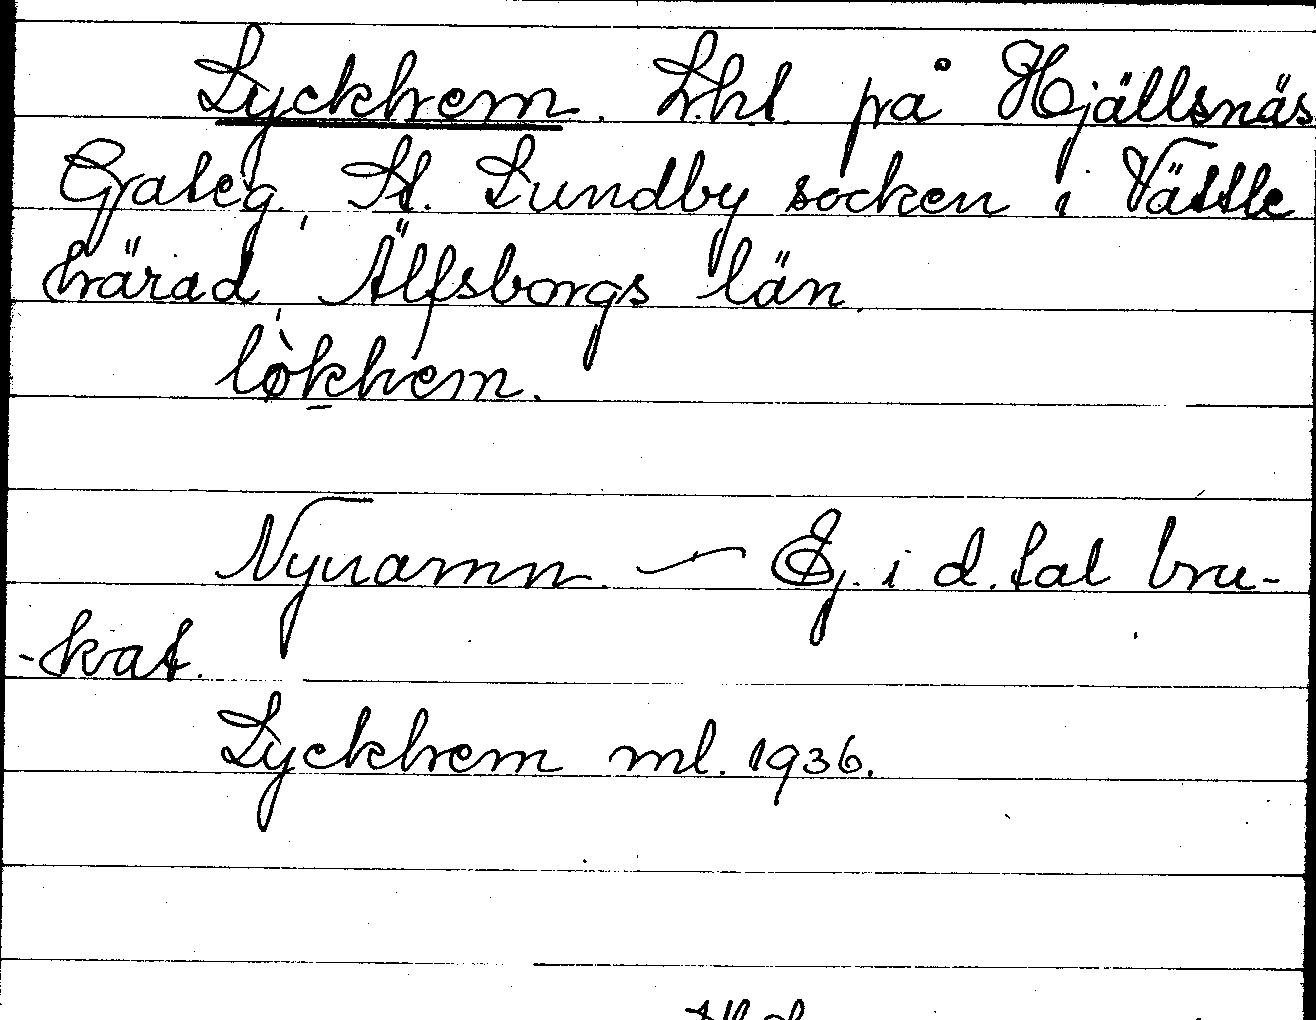 Lyckhem. L.hl. på Hjällsnäs
Grateg, St. Lundby socken i Vättle
härad, Älfsborgs län.
lø̀khem.
Nynamn. — Ej. i d. tal bru-
-kat.
Lyckhem ml. 1936.